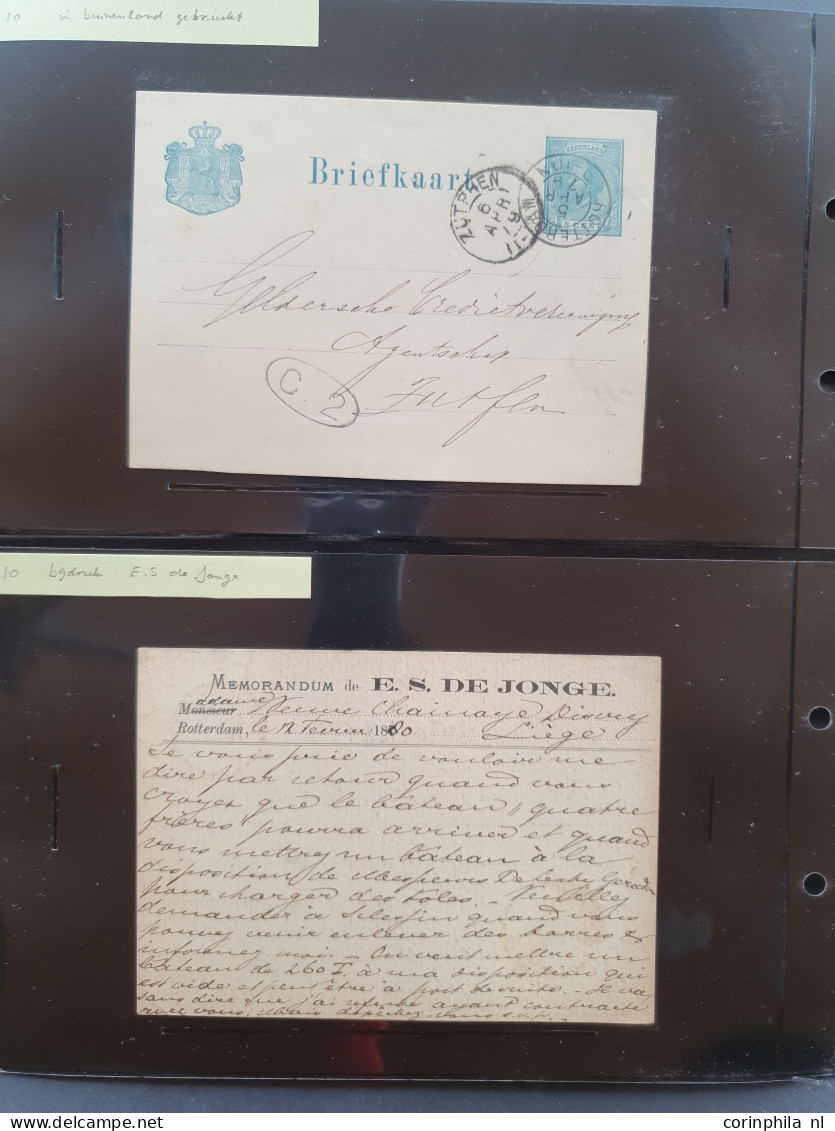 10 in buitenland gebruikt
Briefkaart
NEDERLAND
5 CENT
ZUTPHEN
6
APR
79
5
APR
79
Geldersche Credietvereeniging
Agentschap
Zutfen
C. 2
10 bijdruk E.S de Jonge
MEMORANDUM de E. S. DE JONGE.
Monsieur adame Veuve Chainaye Discry
Rotterdam, le 12 Fevrier 1880 Liège
Je vous prie de vouloir me
dire par retour quand vous
croyez que le bâteau "quatre
frères" pourra arriver et quand
vous mettrez un bâteau à la
disposition de Messieurs
pour charger des tôles. – Veuillez
demander à Sclessin quand vous
pouvez venir enlever des barres &
informez moi. – On veut mettre un
bâteau de 260 T. à ma disposition qui
est vide et peut être à port de suite. – Je vas
sans dire que j'ai refusé ayant contracté
avec vous. Mais dépêchez-vous s.v.p. –
www.delcampe.net
corinphila nl